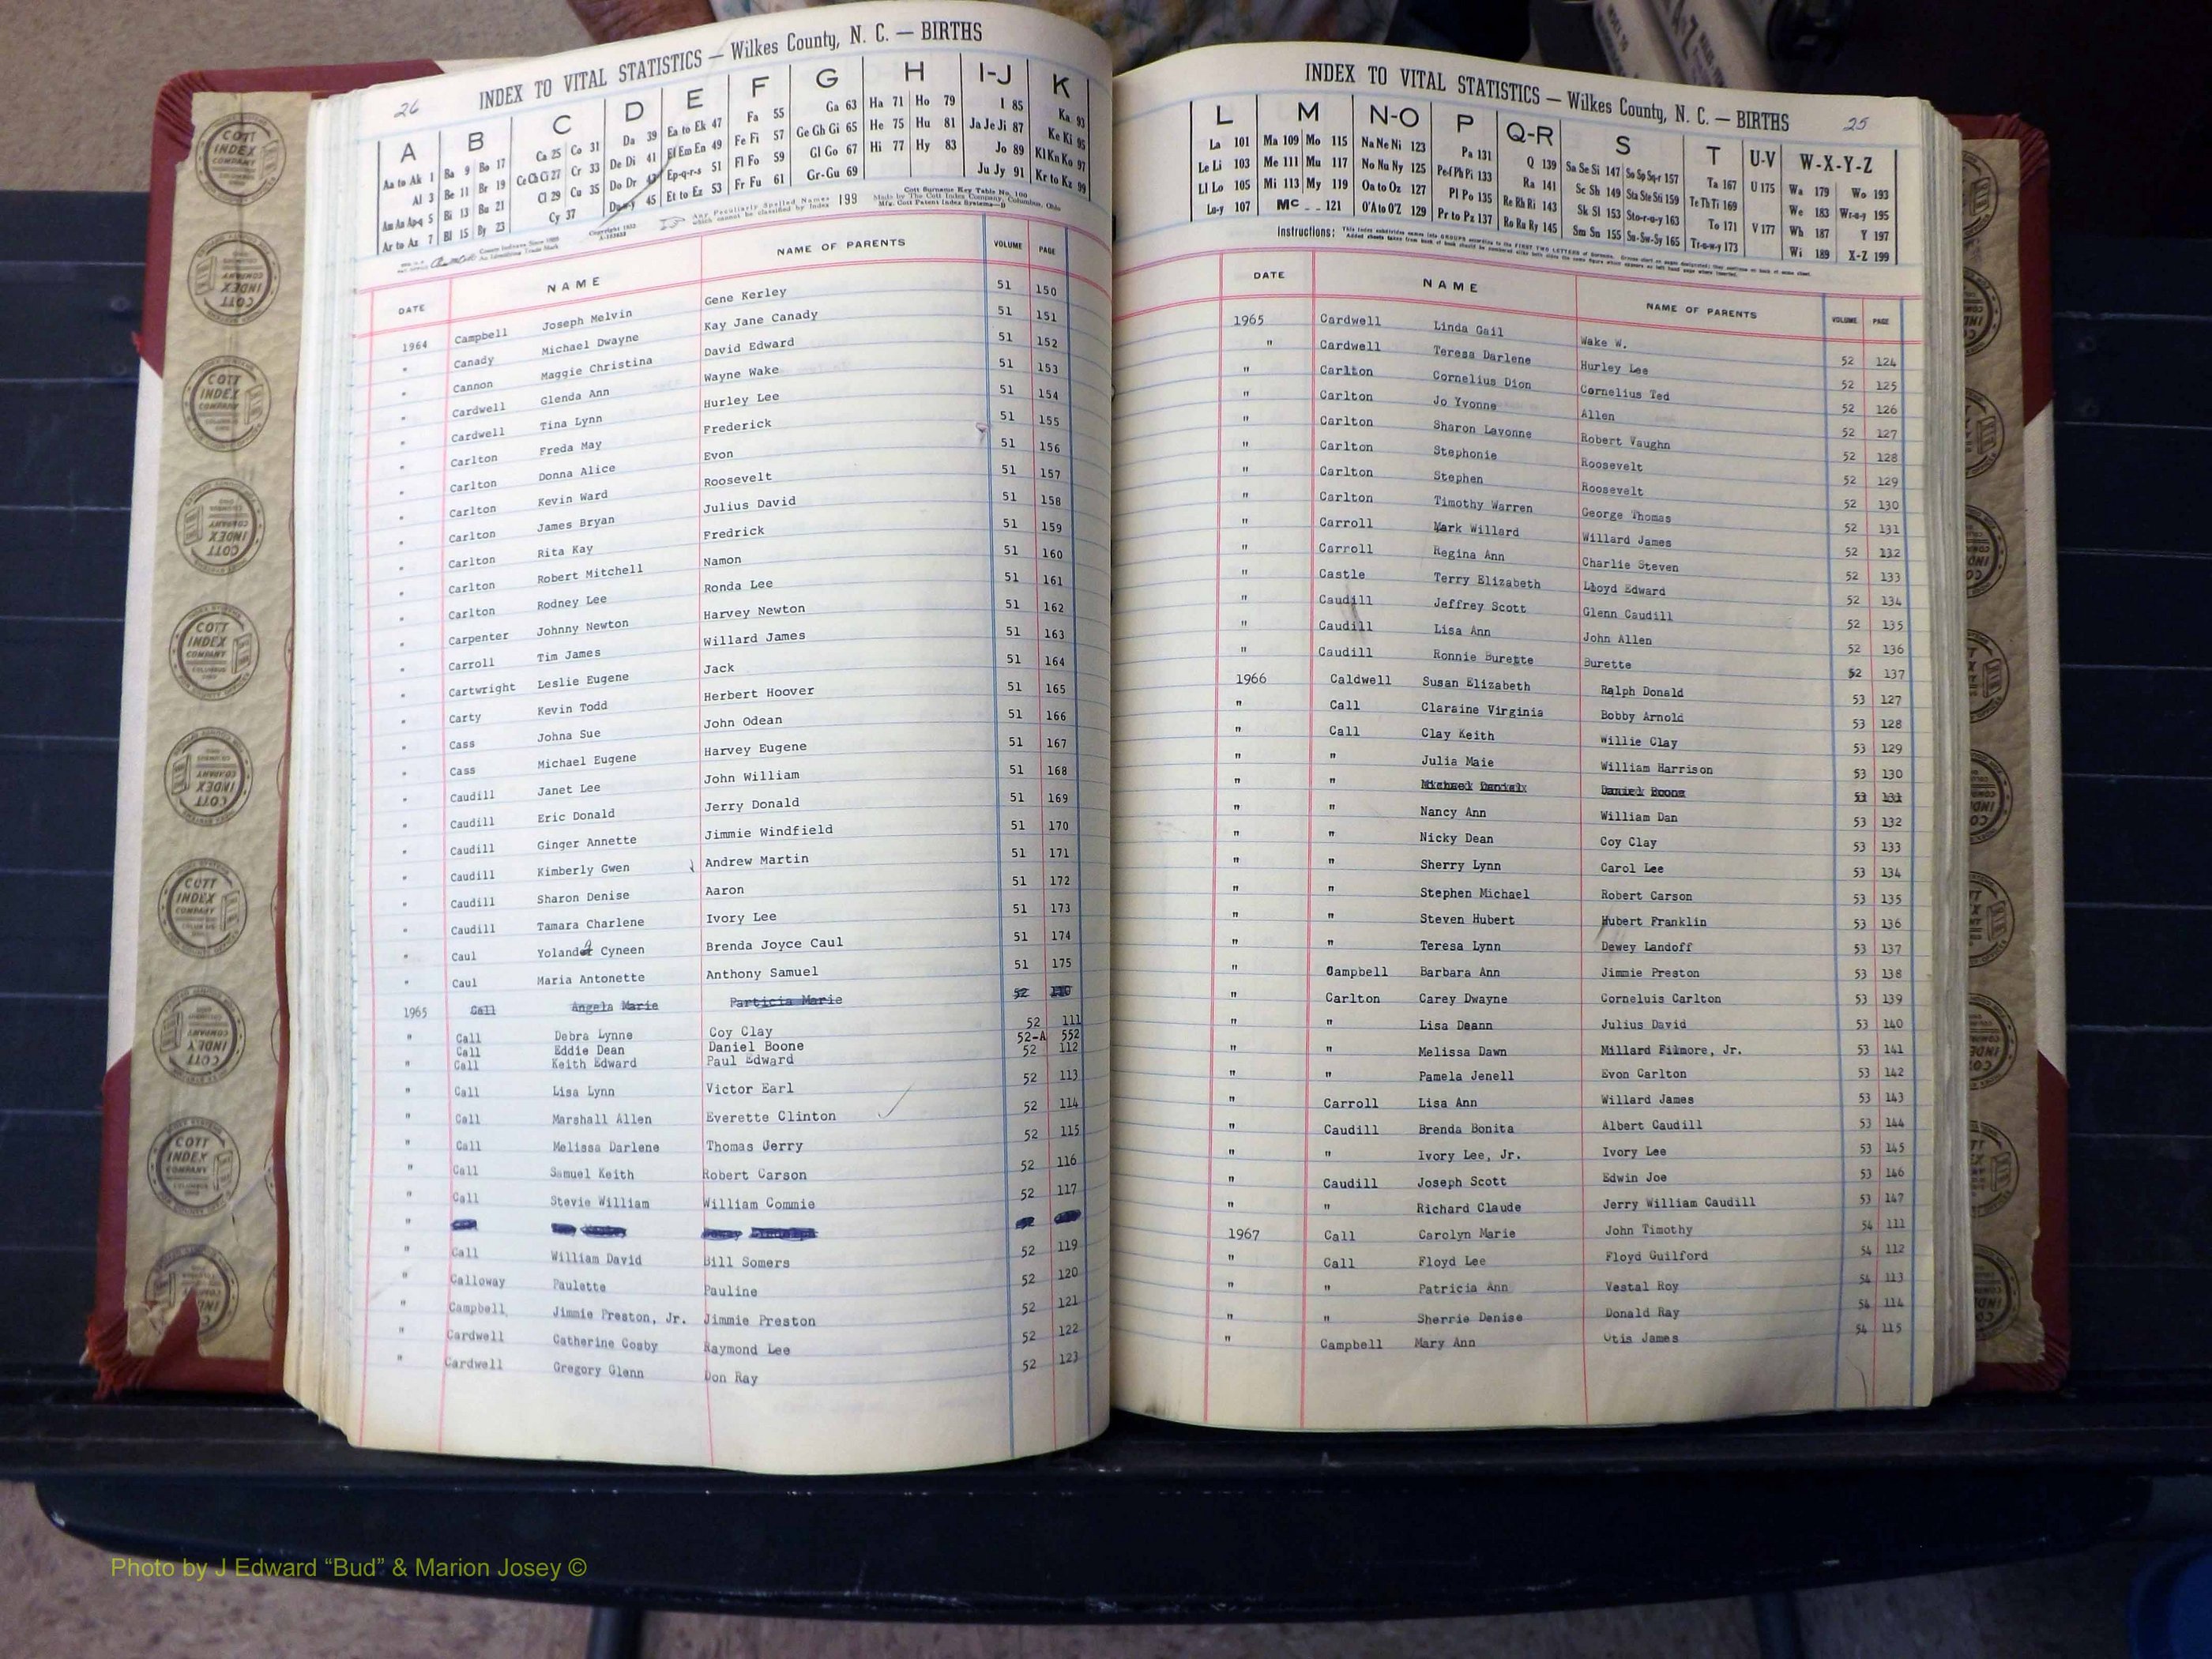 26
INDEX TO VITAL STATISTICS — Wilkes County, N. C. — BIRTHS
A B C D E F G H I-J K
Aa to Ak 1 Ba 9 Bo 17 Ca 25 Co 31 Da 39 Ea to Ek 47 Fa 55 Ga 63 Ha 71 Ho 79 I 85 Ka 93
Al 3 Be 11 Br 19 Ce Ch Ci 27 Cr 33 De Di 41 El Em En 49 Fe Fi 57 Ge Gh Gi 65 He 75 Hu 81 Ja Je Ji 87 Ke Ki 95
Am An Ap-q 5 Bi 13 Bu 21 Cl 29 Cu 35 Do Dr 43 Ep-q-r-s 51 Fl Fo 59 Gl Go 67 Hi 77 Hy 83 Jo 89 Kl Kn Ko 97
Ar to Az 7 Bl 15 By 23 Cy 37 Du-w-y 45 Et to Ez 53 Fr Fu 61 Gr-Gu 69 Ju Jy 91 Kr to Kz 99
Any Peculiarly Spelled Names which cannot be classified by Index 199
Cott Surname Key Table No. 100
Made by The Cott Index Company, Columbus, Ohio
DATE NAME NAME OF PARENTS VOLUME PAGE
1964 Campbell Joseph Melvin Gene Kerley 51 150
" Canady Michael Dwayne Kay Jane Canady 51 151
" Cannon Maggie Christina David Edward 51 152
" Cardwell Glenda Ann Wayne Wake 51 153
" Cardwell Tina Lynn Hurley Lee 51 154
" Carlton Freda May Frederick 51 155
" Carlton Donna Alice Evon 51 156
" Carlton Kevin Ward Roosevelt 51 157
" Carlton James Bryan Julius David 51 158
" Carlton Rita Kay Fredrick 51 159
" Carlton Robert Mitchell Namon 51 160
" Carlton Rodney Lee Ronda Lee 51 161
" Carpenter Johnny Newton Harvey Newton 51 162
" Carroll Tim James Willard James 51 163
" Cartwright Leslie Eugene Jack 51 164
" Carty Kevin Todd Herbert Hoover 51 165
" Cass Johna Sue John Odean 51 166
" Cass Michael Eugene Harvey Eugene 51 167
" Caudill Janet Lee John William 51 168
" Caudill Eric Donald Jerry Donald 51 169
" Caudill Ginger Annette Jimmie Windfield 51 170
" Caudill Kimberly Gwen Andrew Martin 51 171
" Caudill Sharon Denise Aaron 51 172
" Caudill Tamara Charlene Ivory Lee 51 173
" Caul Yolanda Cyneen Brenda Joyce Caul 51 174
" Caul Maria Antonette Anthony Samuel 51 175
1965 Call Angela Marie Particia Marie 52 110
" Call Debra Lynne Coy Clay 52 111
Call Eddie Dean Daniel Boone 52-A 552
" Call Keith Edward Paul Edward 52 112
" Call Lisa Lynn Victor Earl 52 113
" Call Marshall Allen Everette Clinton 52 114
" Call Melissa Darlene Thomas Jerry 52 115
" Call Samuel Keith Robert Carson 52 116
" Call Stevie William William Commie 52 117
"
" Call William David Bill Somers 52 119
" Calloway Paulette Pauline 52 120
" Campbell Jimmie Preston, Jr. Jimmie Preston 52 121
" Cardwell Catherine Cosby Raymond Lee 52 122
" Cardwell Gregory Glenn Don Ray 52 123
INDEX TO VITAL STATISTICS — Wilkes County, N. C. — BIRTHS 25
L M N-O P Q-R S T U-V W-X-Y-Z
La 101 Ma 109 Mo 115 Na Ne Ni 123 Pa 131 Q 139 Sa Se Si 147 So Sp Sq-r 157 Ta 167 U 175 Wa 179 Wo 193
Le Li 103 Me 111 Mu 117 No Nu Ny 125 Pe-f Ph Pi 133 Ra 141 Sc Sh 149 Sta Ste Sti 159 Te Th Ti 169 We 183 Wr-u-y 195
Ll Lo 105 Mi 113 My 119 Oa to Oz 127 Pl Po 135 Re Rh Ri 143 Sk Sl 153 Sto-r-u-y 163 To 171 V 177 Wh 187 Y 197
Lu-y 107 Mc 121 O'A to O'Z 129 Pr to Pz 137 Ro Ru Ry 145 Sm Sn 155 Su-Sw-Sy 165 Tr-u-w-y 173 Wi 189 X-Z 199
Instructions:
DATE NAME NAME OF PARENTS VOLUME PAGE
1965 Cardwell Linda Gail Wake W. 52 124
" Cardwell Teresa Darlene Hurley Lee 52 125
" Carlton Cornelius Dion Cornelius Ted 52 126
" Carlton Jo Yvonne Allen 52 127
" Carlton Sharon Lavonne Robert Vaughn 52 128
" Carlton Stephonie Roosevelt 52 129
" Carlton Stephen Roosevelt 52 130
" Carlton Timothy Warren George Thomas 52 131
" Carroll Mark Willard Willard James 52 132
" Carroll Regina Ann Charlie Steven 52 133
" Castle Terry Elizabeth Lloyd Edward 52 134
" Caudill Jeffrey Scott Glenn Caudill 52 135
" Caudill Lisa Ann John Allen 52 136
" Caudill Ronnie Burette Burette 52 137
1966 Caldwell Susan Elizabeth Ralph Donald 53 127
" Call Claraine Virginia Bobby Arnold 53 128
" Call Clay Keith Willie Clay 53 129
" " Julia Maie William Harrison 53 130
" " Michael Daniel Daniel Boone 53 131
" " Nancy Ann William Dan 53 132
" " Nicky Dean Coy Clay 53 133
" " Sherry Lynn Carol Lee 53 134
" " Stephen Michael Robert Carson 53 135
" " Steven Hubert Hubert Franklin 53 136
" " Teresa Lynn Dewey Landoff 53 137
" Campbell Barbara Ann Jimmie Preston 53 138
" Carlton Carey Dwayne Corneluis Carlton 53 139
" " Lisa Deann Julius David 53 140
" " Melissa Dawn Millard Filmore, Jr. 53 141
" " Pamela Jenell Evon Carlton 53 142
" Carroll Lisa Ann Willard James 53 143
" Caudill Brenda Bonita Albert Caudill 53 144
" " Ivory Lee, Jr. Ivory Lee 53 145
" Caudill Joseph Scott Edwin Joe 53 146
" " Richard Claude Jerry William Caudill 53 147
1967 Call Carolyn Marie John Timothy 54 111
" Call Floyd Lee Floyd Guilford 54 112
" " Patricia Ann Vestal Roy 54 113
" " Sherrie Denise Donald Ray 54 114
" Campbell Mary Ann Otis James 54 115
COTT INDEX COMPANY
Photo by J Edward “Bud” & Marion Josey ©